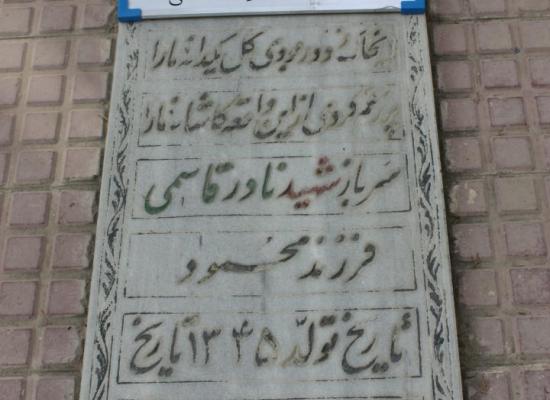 ای خاک ز دور بردی گل یکدانه ما را
پر غم کردی از این واقعه کاشانه ما را
سرباز شهید نادر قاسمی
فرزند محمود
تاریخ تولد ۱۳۴۵ تاریخ